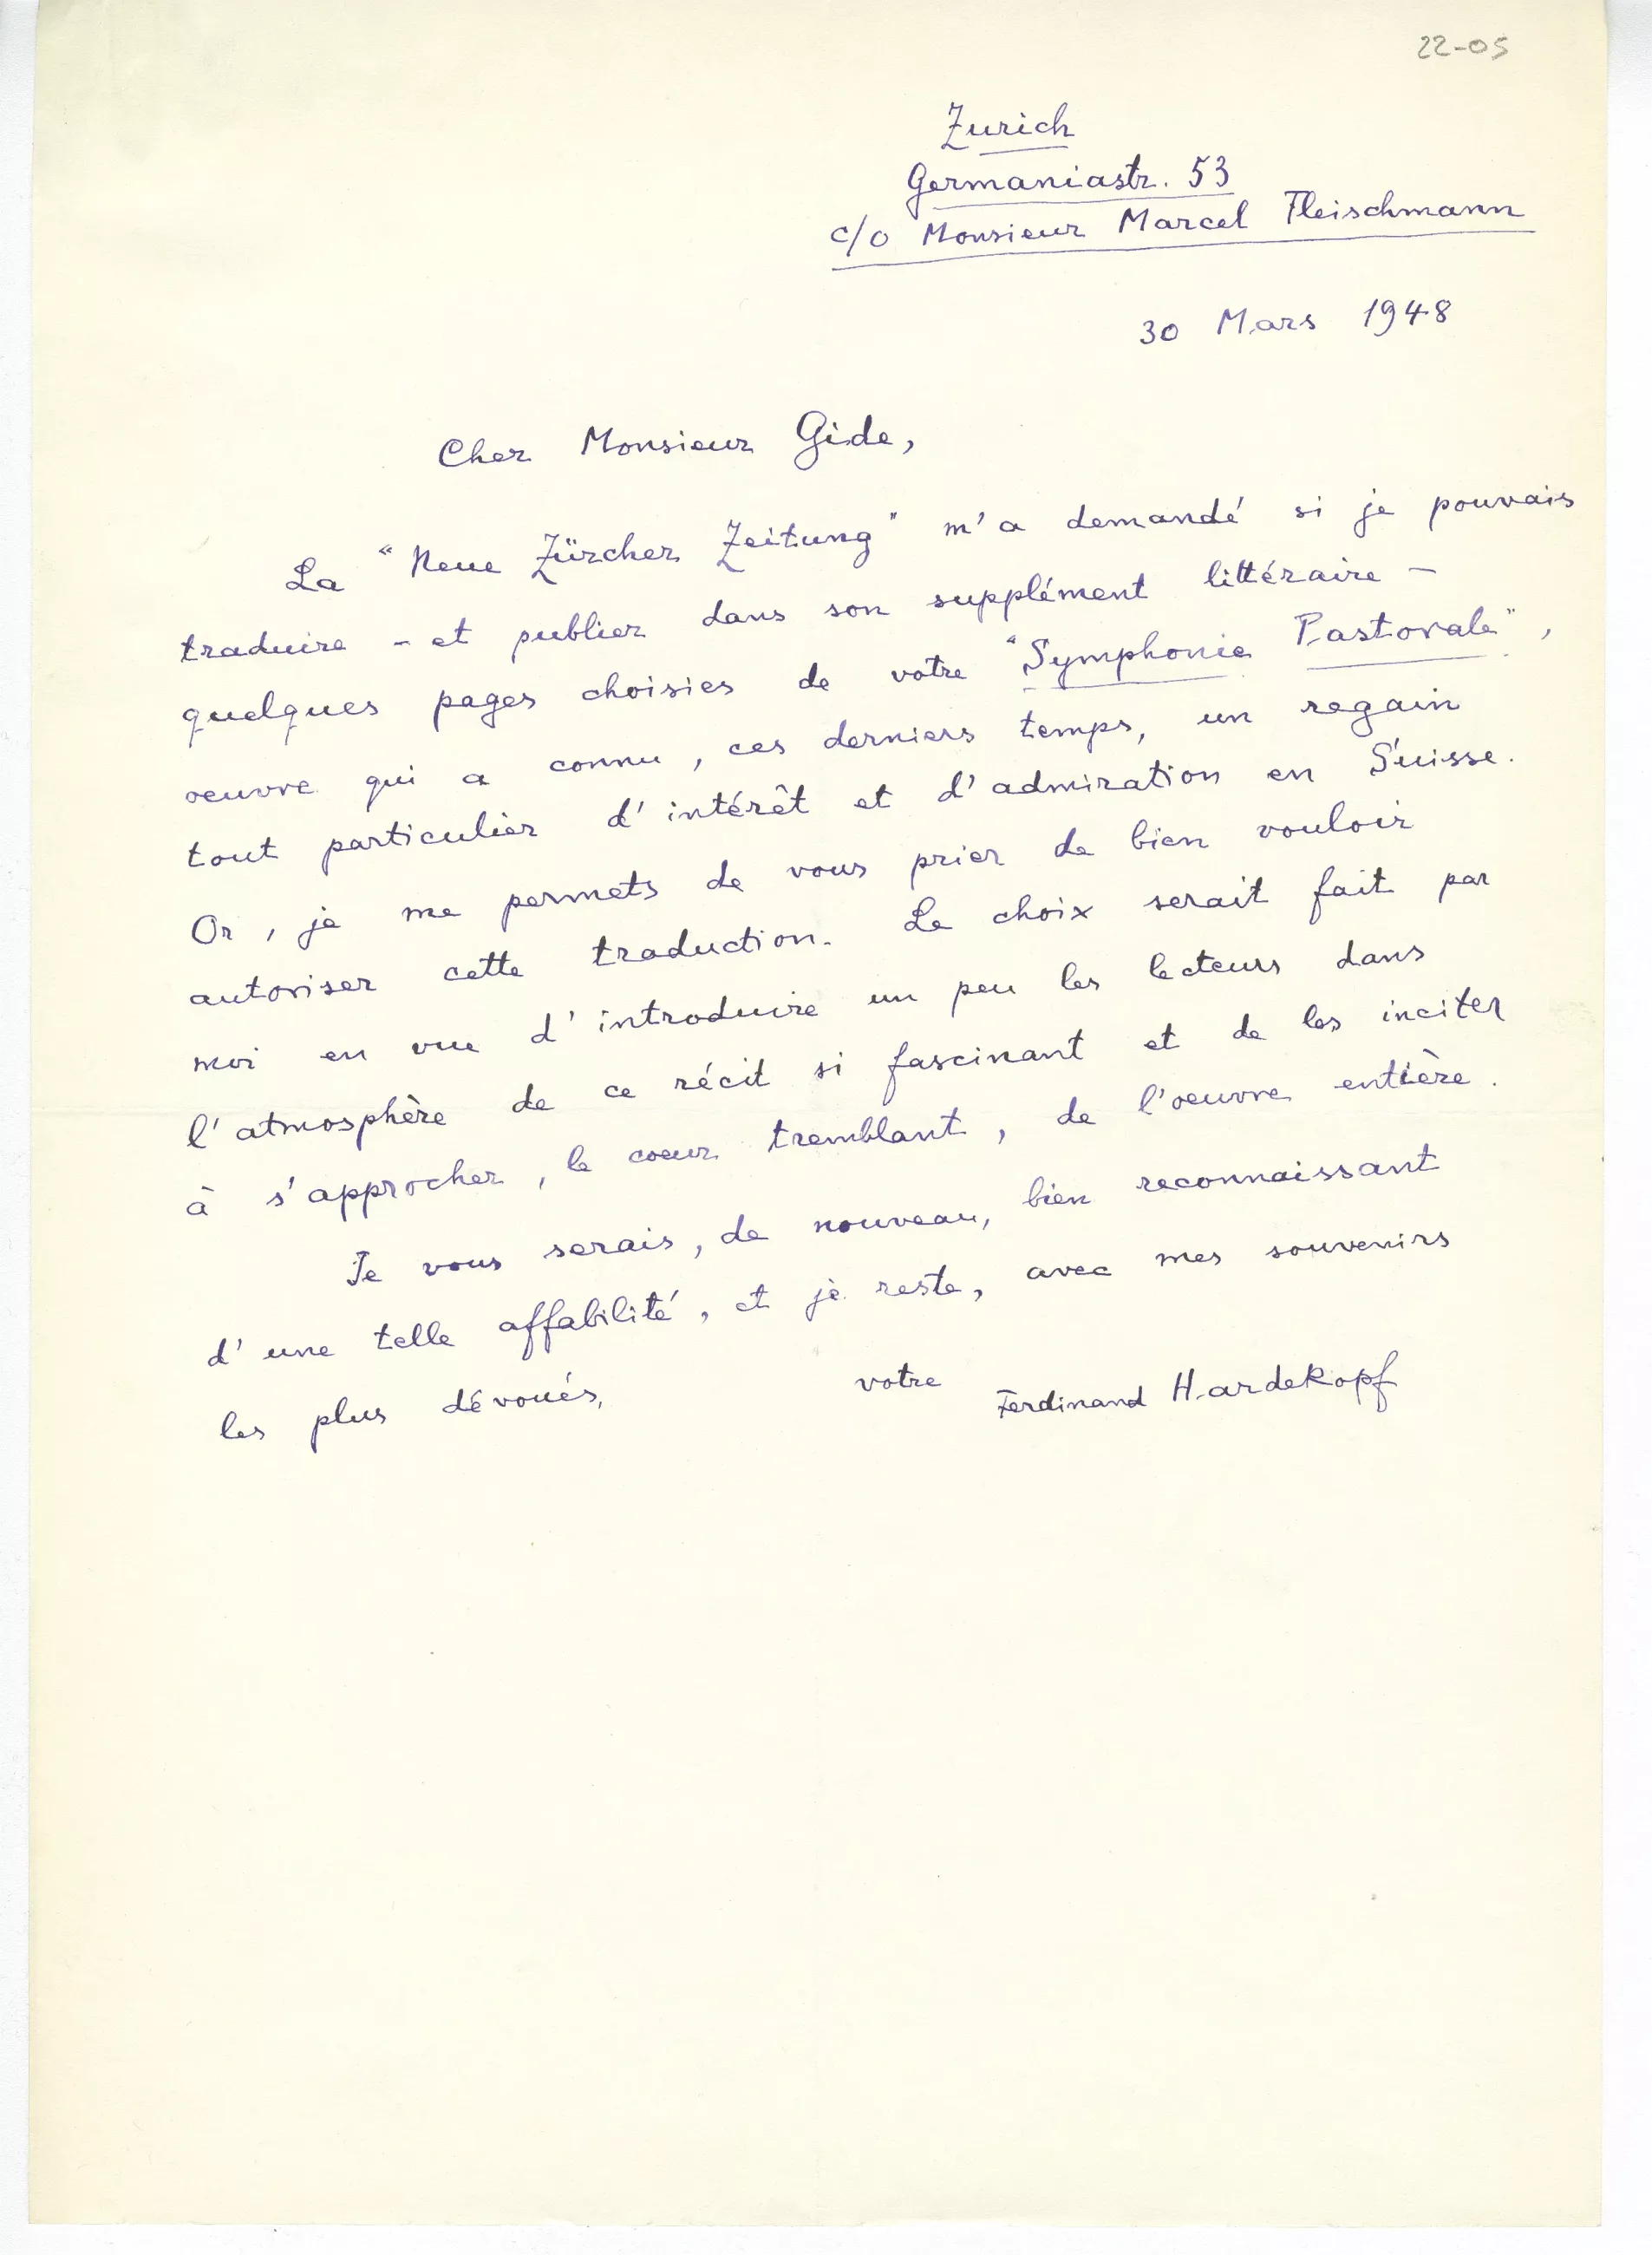 22-05
Zurich
Germaniastr. 53
c/o Monsieur Marcel Fleischmann
30 Mars 1948
Cher Monsieur Gide,
La "Neue Zürcher Zeitung" m'a demandé si je pouvais
traduire - et publier dans son supplément littéraire -
quelques pages choisies de votre "Symphonie Pastorale",
oeuvre qui a connu, ces derniers temps, un regain
tout particulier d'intérêt et d'admiration en Suisse.
Or, je me permets de vous prier de bien vouloir
autoriser cette traduction. Le choix serait fait par
moi en vue d'introduire un peu les lecteurs dans
l'atmosphère de ce récit si fascinant et de les inciter
à s'approcher, le coeur tremblant, de l'oeuvre entière.
Je vous serais, de nouveau, bien reconnaissant
d'une telle affabilité, et je reste, avec mes souvenirs
les plus dévoués,
votre Ferdinand Hardekopf